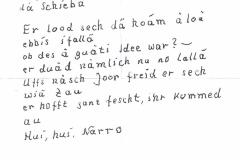 dä Schieba
Er lood sech dä hoám á loá
ebbis ifallä
ob des ä guäti Idee wär?~
er duäd nämlich nu no lallä
Uffs näsch Joor freid er sech
wiä Zau
er hofft ganz fescht, ihr kummed
au
Hui, hui. Närro